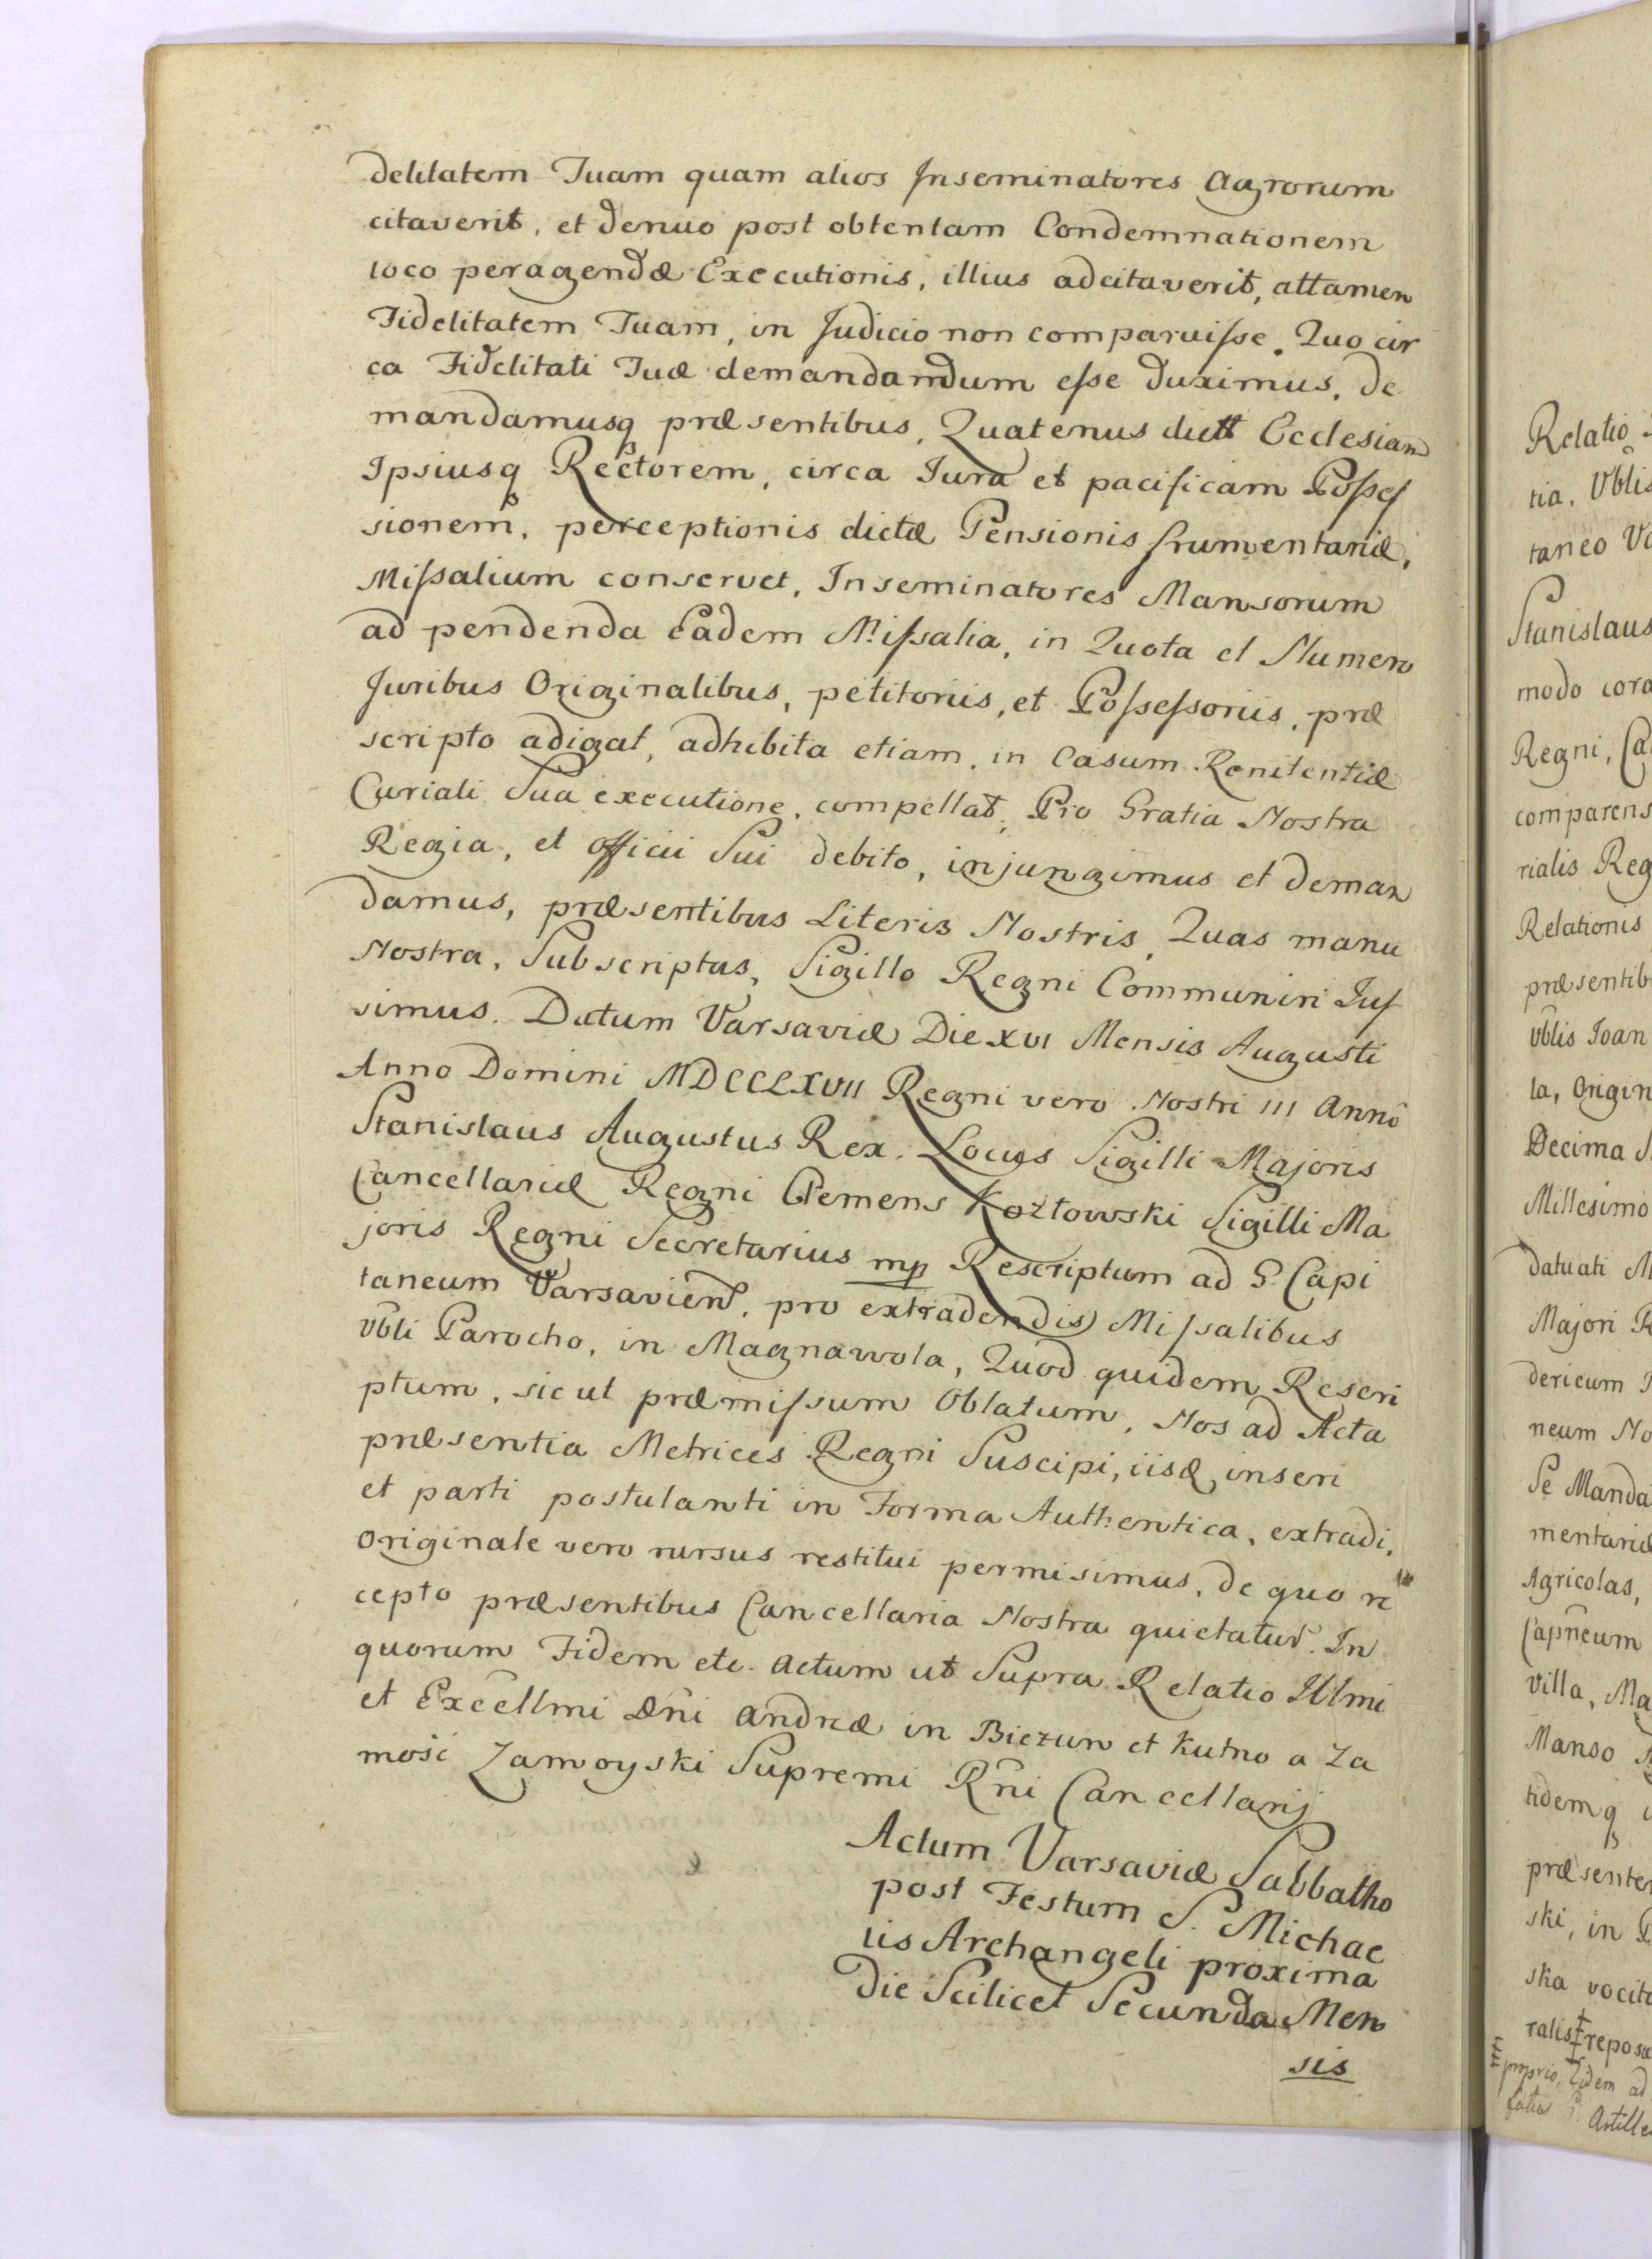 delitatem Tuam quam alios Inseminatores Agrorum
citaverit, et denuo post obtentam Condemnationem
loco peragendæ Executionis, illius adcitaverit, attamen
Fidelitatem Tuam, in Judicio non comparuiſse. Quo cir
ca Fidelitati Tuæ demandandum eſse duximus, de
mandamusq præsentibus, Quatenus dictt Ecclesiam
Ipsiusq Rectorem, circa Jura et pacificam Poſseſ
sionem, perceptionis dictæ Pensionis frumentariæ,
Miſsalium conservet, Inseminatores Mansorum
ad pendenda Eadem Miſsalia, in Quota et Numero
Juribus Originalibus, petitoriis, et Poſseſsoriis, præ
scripto adigat, adhibita etiam, in Casum Renitentiæ
Curiali Sua executione, compellat, Pro Gratia Nostra
Regia, et officii Sui debito, injungimus et deman
damus, præsentibus Literis Nostris, Quas manu
Nostra, Subscriptas, Sigillo Regni Communiri Juſ
simus. Datum Varsaviæ Die XVI Mensis Augusti
Anno Domini MDCCLXVII Regni vero Nostri III Anno
Stanislaus Augustus Rex. Locus Sigilli Majoris
Cancellariæ Regni Clemens Kozłowski Sigilli Ma
joris Regni Secretarius mp Rescriptum ad G. Capi
taneum Varsavien, pro extradendis Miſsalibus
Vbli Parocho, in Magnawola, Quod quidem Rescri
ptum, sicut præmiſsum Oblatum, Nos ad Acta
præsentia Metrices Regni Suscipi, iisq, inseri
et parti postulanti in Forma Authentica, extradi,
Originale vero rursus restitui permisimus, de quo re
cepto præsentibus Cancellaria Nostra quietatur. In
quorum Fidem etc. Actum ut Supra Relatio Illmi
et Excellmi Dni Andreæ in Biezun et Kutno a Za
mosć Zamoyski Supremi Rni Cancellarij
Actum Varsaviæ Sabbatho
post Festum S. Michae
lis Archangeli proxima
Die Scilicet Secunda Men
sis
Relatio
tia, Vblis
taneo
Stanislaus
modo cora
Regni, Ca
comparens
rialis Reg
Relationis
præsentib
Vblis Joan
la, Origin
Decima
Millesimo
datuati
Majori
dericum
neum No
Se Manda
mentariæ
Agricolas,
Capneum
villa, Ma
Manso
tidemq
præsente
ski, in
ska vocita
ralis reposi
proprio, Eidem ad
Artille